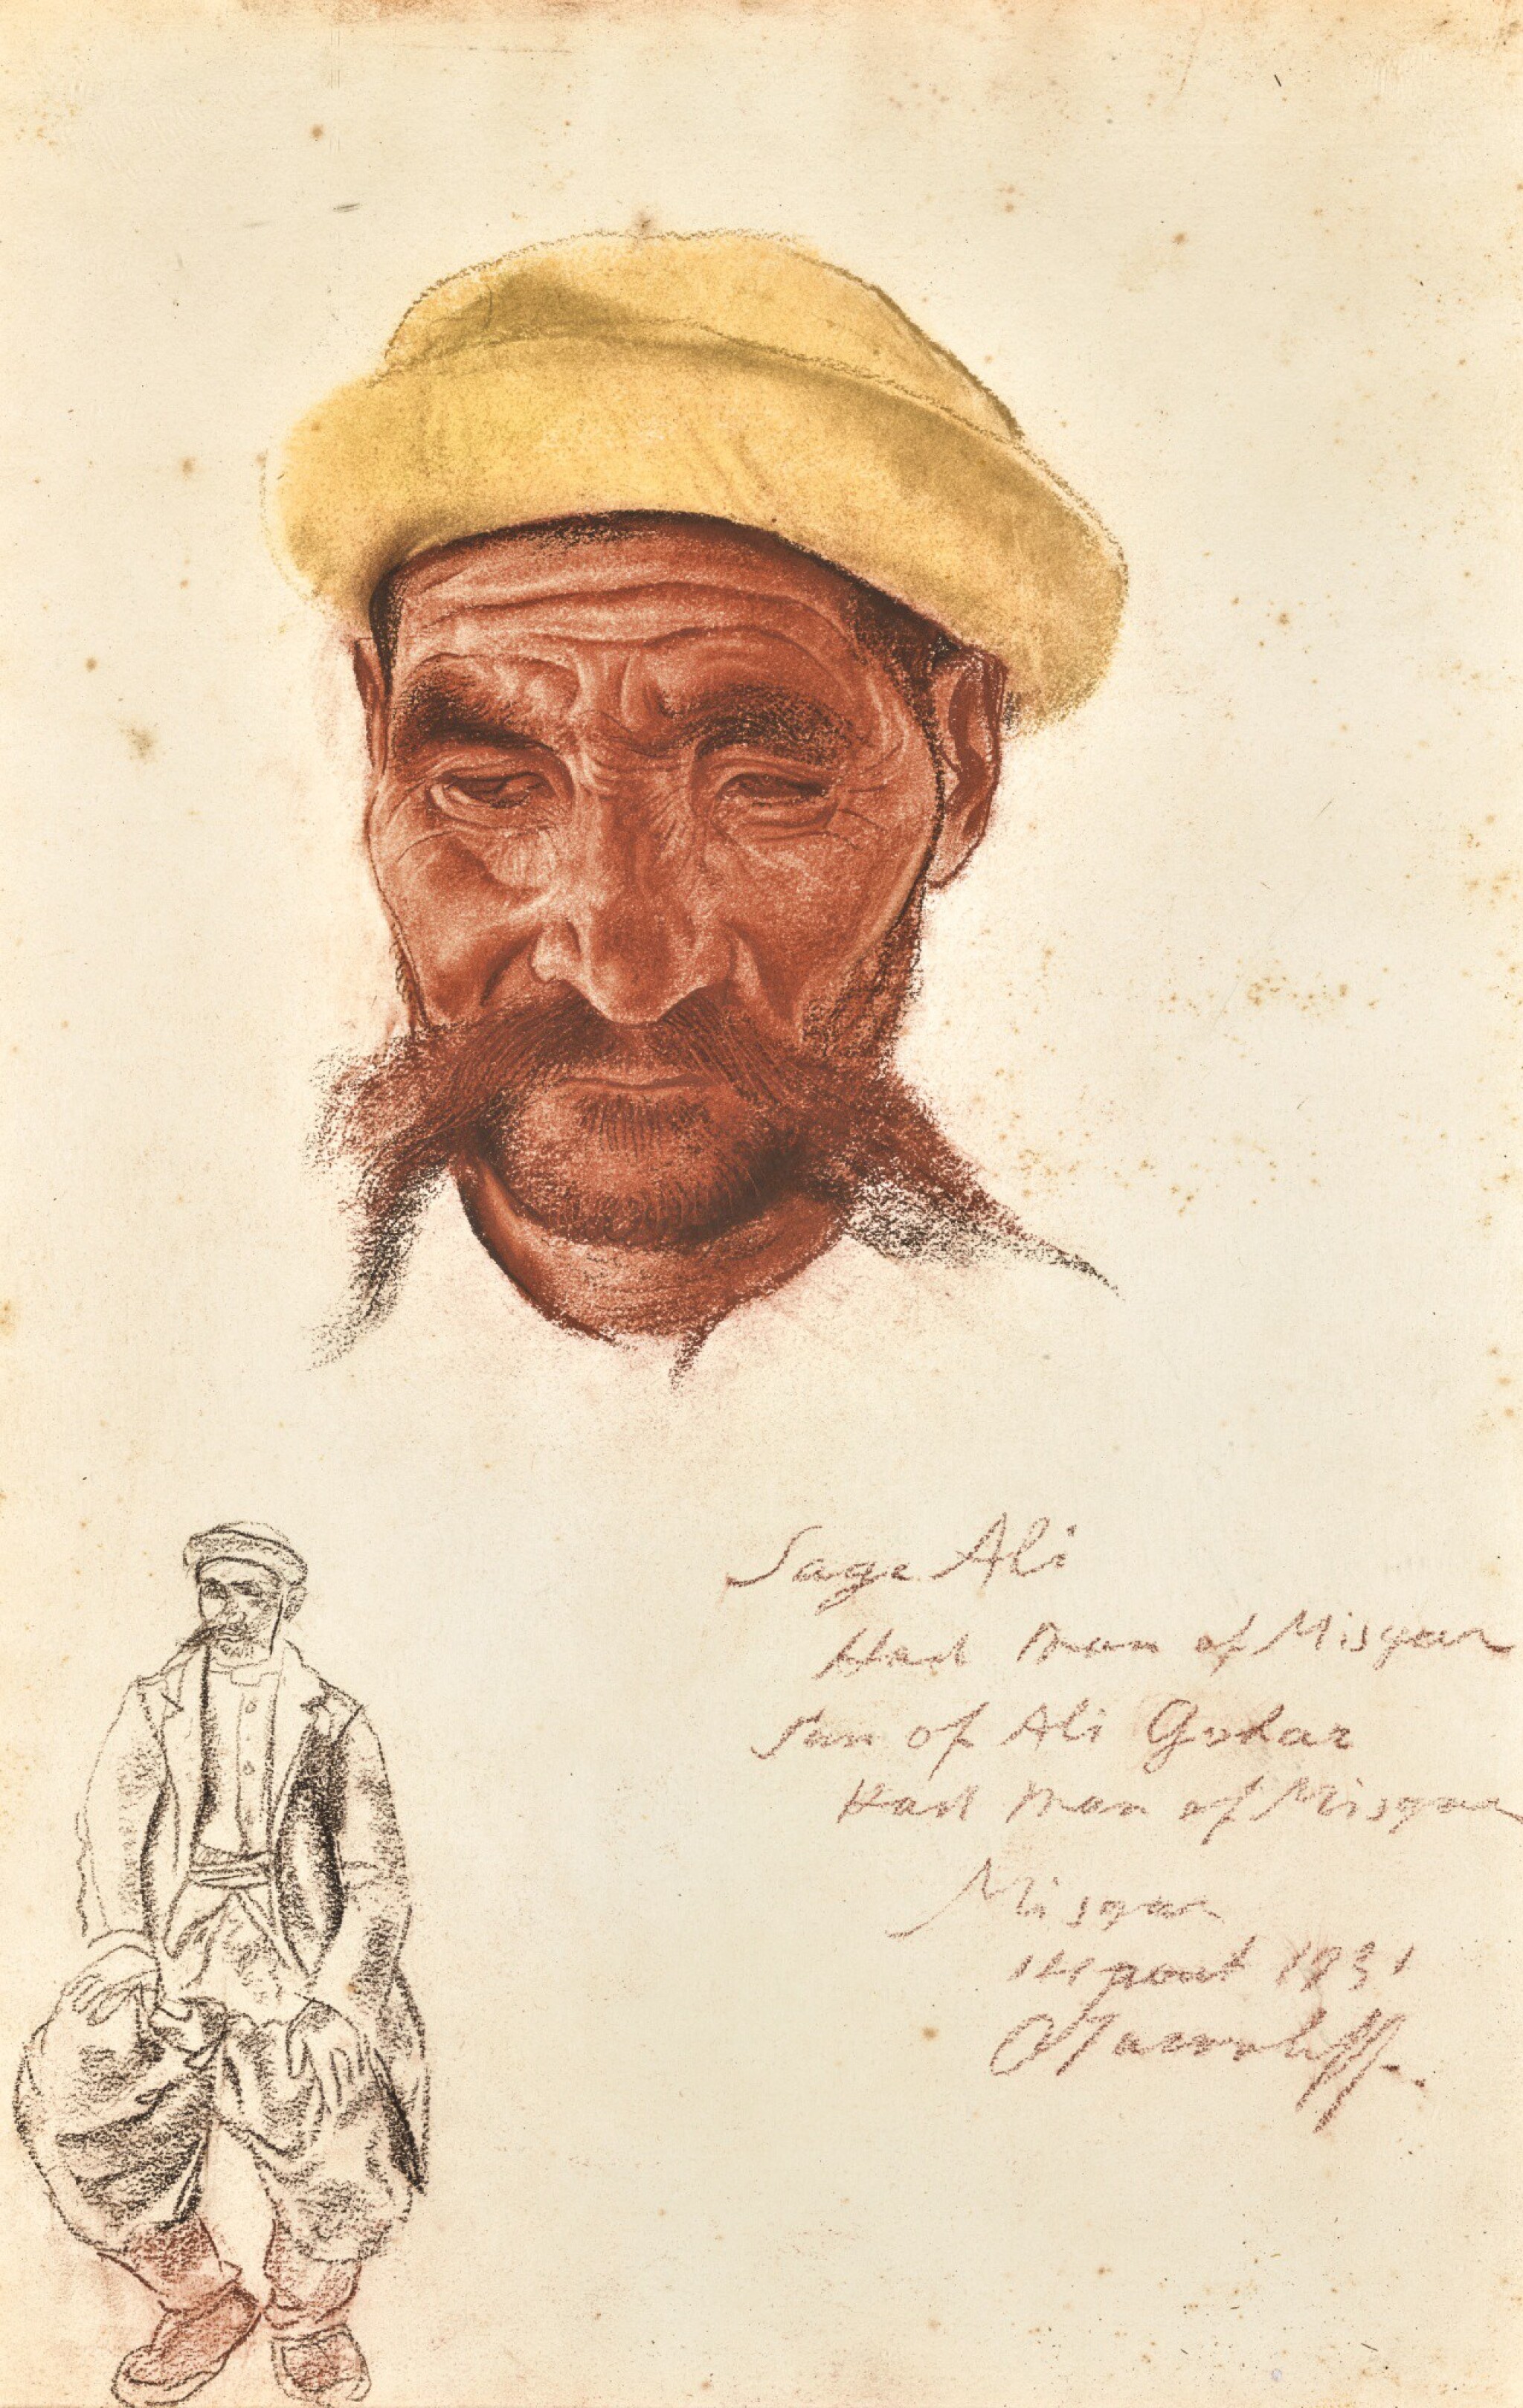 Sage Ali
Had man of Misgar
Sun of Ali Gohar
Had man of Misgar
Misgar
14 aout 1931
A Jacovleff.